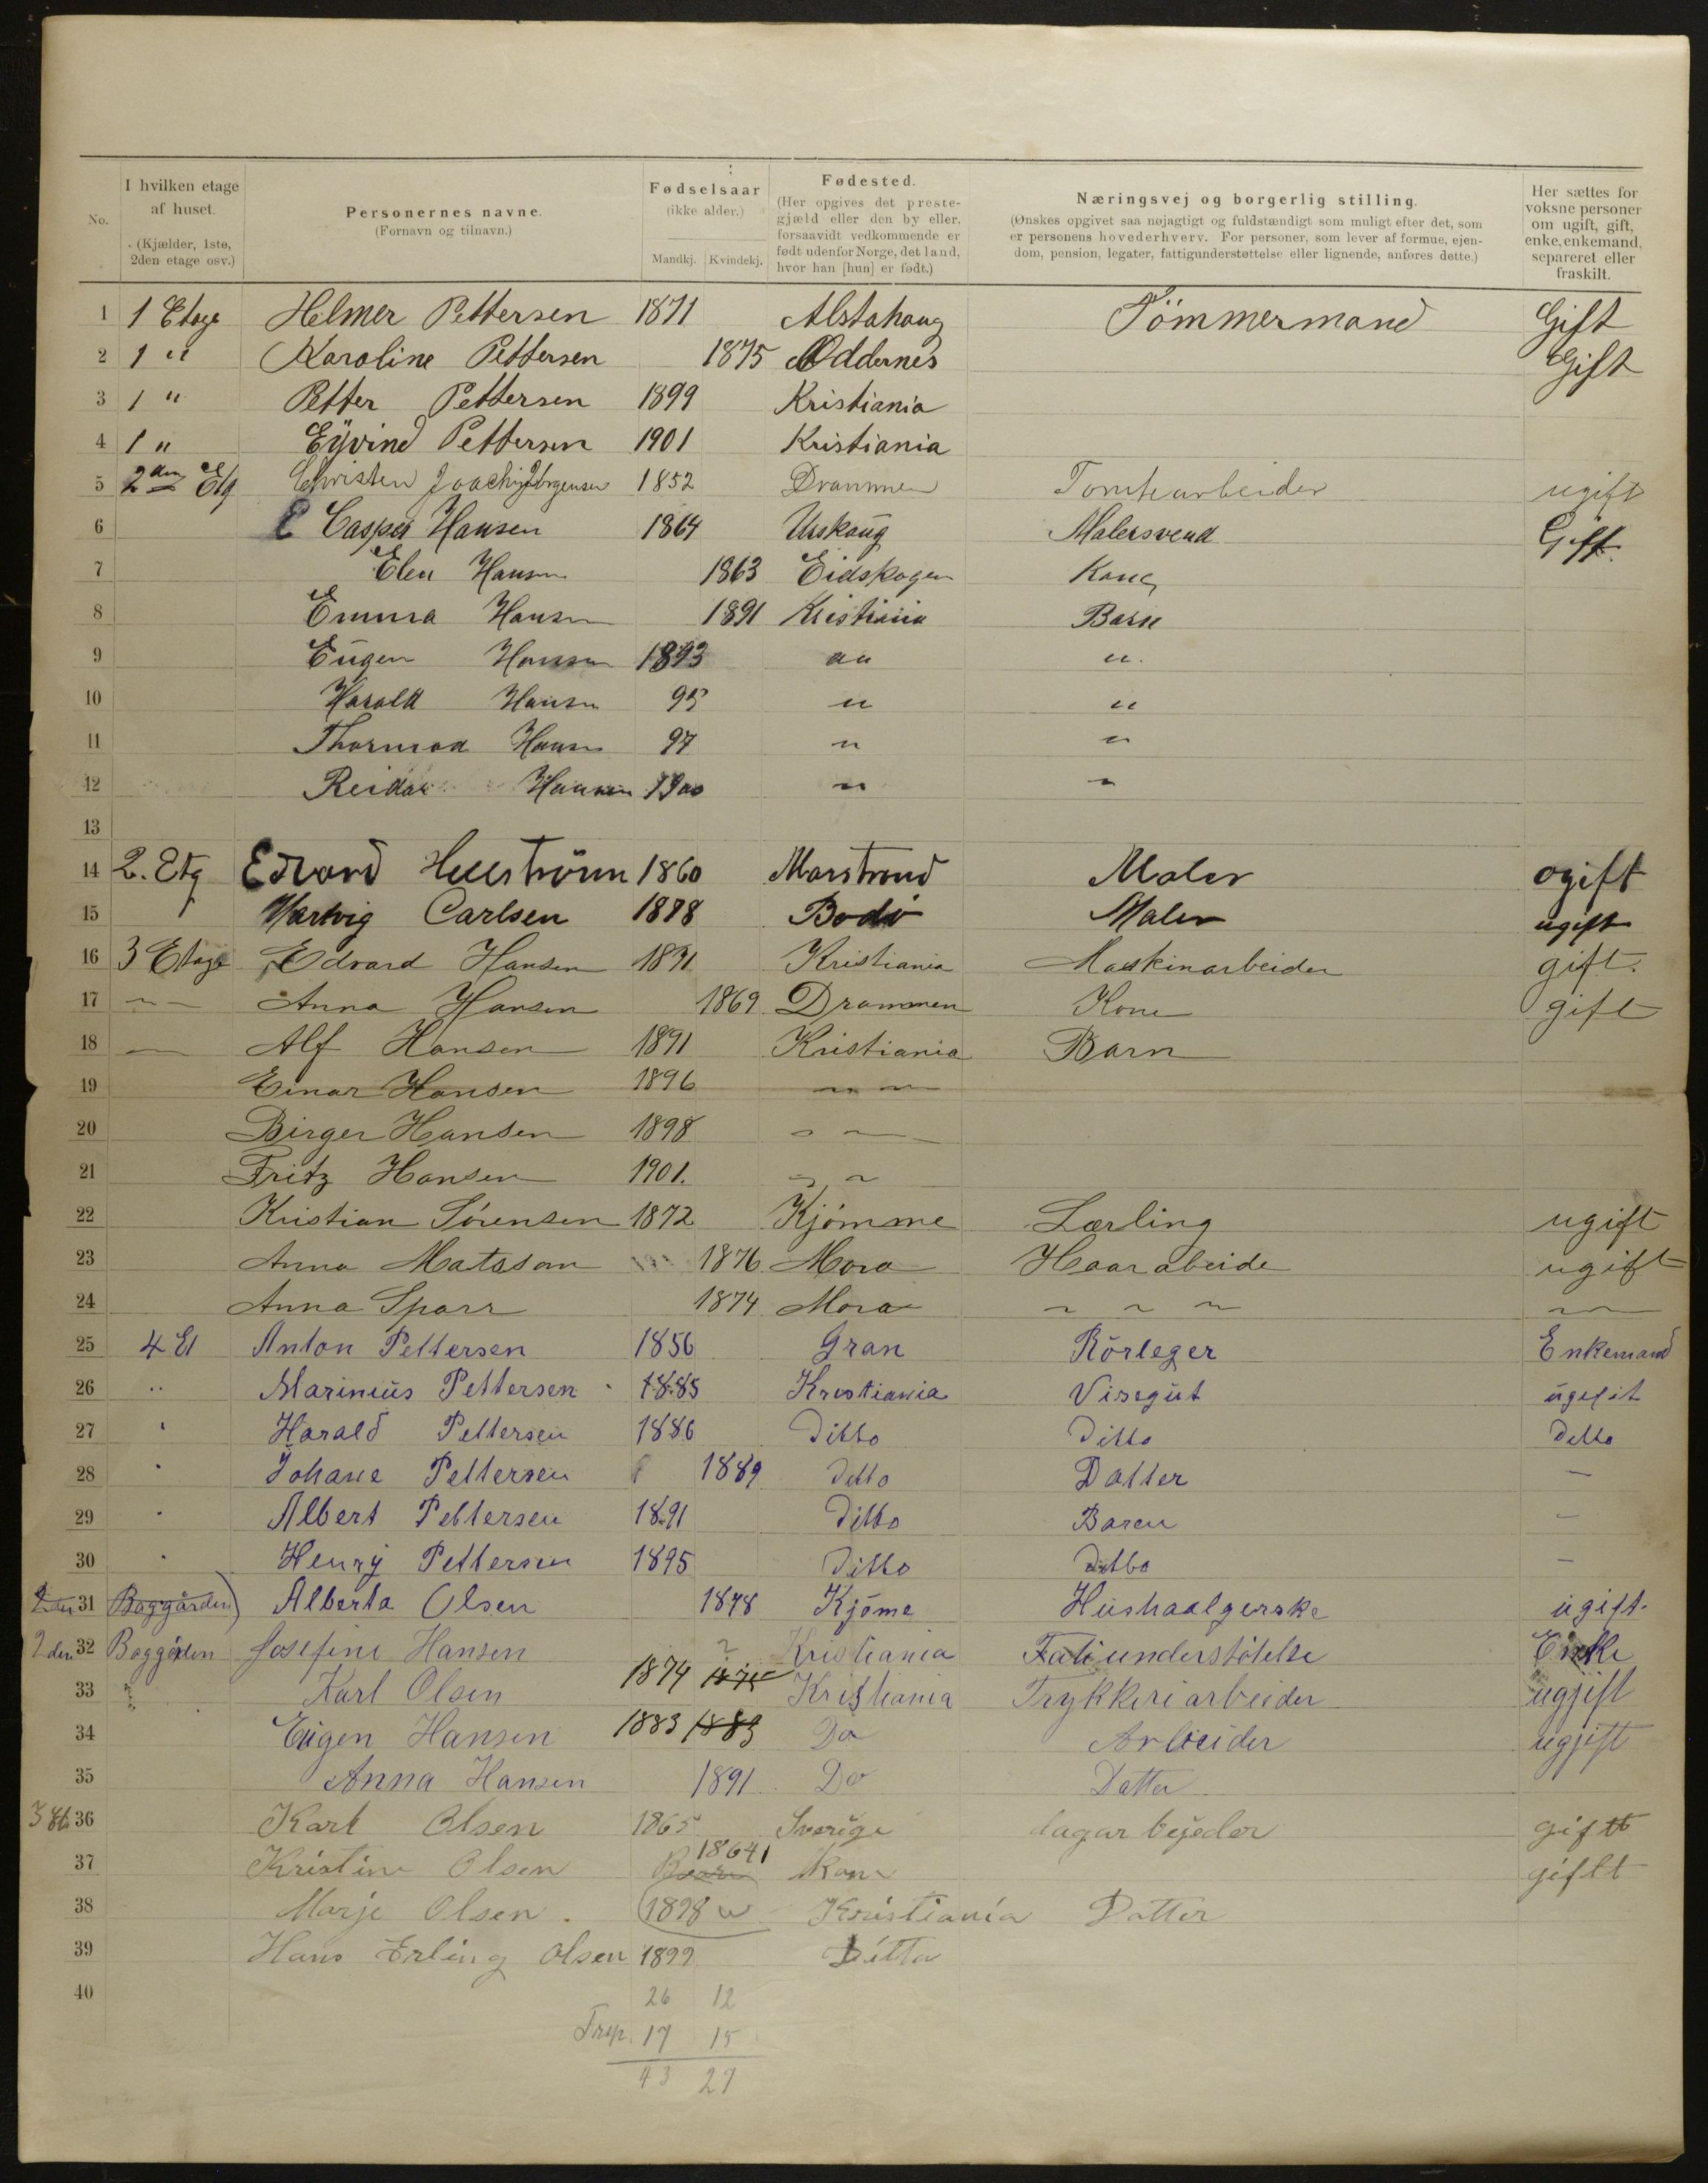 No. | I hvilken etage af huset. (Kjælder, 1ste, 2den etage osv.) | Personernes navne. (Fornavn og tilnavn.) | Fødselsaar (ikke alder.) Mandkj. Kvindekj. | Fødested. (Her opgives det prestegjæld eller den by eller, forsaavidt vedkommende er født udenfor Norge, det land, hvor han [hun] er født.) | Næringsvej og borgerlig stilling. (Ønskes opgivet saa nøjagtigt og fuldstændigt som muligt efter det, som er personens hovederhverv. For personer, som lever af formue, ejendom, pension, legater, fattigunderstøttelse eller lignende, anføres dette.) | Her sættes for voksne personer om ugift, gift, enke, enkemand, separeret eller fraskilt.
1 1 Etage Helmer Pettersen 1871 Alstahaug Tömmermand Gift
2 1 " Karoline Pettersen 1875 Oddernes Gift
3 1 " Petter Pettersen 1899 Kristiania
4 1 " Eÿvind Pettersen 1901 Kristiania
5 2den Etg Christen Joachim Jörgensen 1852 Drammen Tomtearbeider ugift
6 Casper Hansen 1864 Urskaug Malersvend Gift.
7 Elen Hansen 1863 Eidskogen Kone
8 Emma Hansen 1891 Kristiania Barn
9 Eugen Hansen 1893 " "
10 Harald Hansen 95 " "
11 Thormod Hansen 97 " "
12 Reidar Hansen 1900 " "
13
14 2. Etg Edvard Hellström 1860 Marstrand Maler ogift
15 Hartvig Carlsen 1878 Bodö Maler ugift
16 3 Etage Edvard Hansen 1871 Kristiania Maskinarbeider gift.
17 " Anna Hansen 1869 Drammen Kone gift
18 " Alf Hansen 1891 Kristiania Barn
19 Einar Hansen 1896 " "
20 Birger Hansen 1898 " "
21 Fritz Hansen 1901. " "
22 Kristian Sörensen 1872 Kjömme Lærling ugift
23 Anna Matsson 1876 Mora Haarabeide ugift
24 Anna Sparr 1874 Mora " " " "
25 4 Et Anton Pettersen 1856 Gran Rörleger Enkemand
26 " Marinius Pettersen 1885 Kristiania Visegut
27 " Harald Pettersen 1886 Ditto Ditto Ditto
28 " Johane Pettersen 1889 Ditto Datter —
29 " Albert Pettersen 1891 Ditto Baren —
30 " Henry Pettersen 1895 Ditto Ditto —
2den 31 Baggården) Alberta Olsen 1878 Kjöme Hushaalgerske ugift.
2den 32 Baggården Josefine Hansen ? Kristiania Fatiunderstötelse Enke
33 " Karl Olsen 1874 Kristiania Trykkeriarbeider ugjift
34 Eugen Hansen 1883 1883 Do Arbeider ugjift
35 Anna Hansen 1891 Do Datter
3 Et 36 Karl Olsen 1865 Sverige dagarbejeder gift
37 Kristine Olsen 1864 Kone giftt
38 Marje Olsen. 1898 Kristiania Datter
39 Hans Erling Olsen 1899 Ditto
40
26 12
Trsp. 17 15
43 27